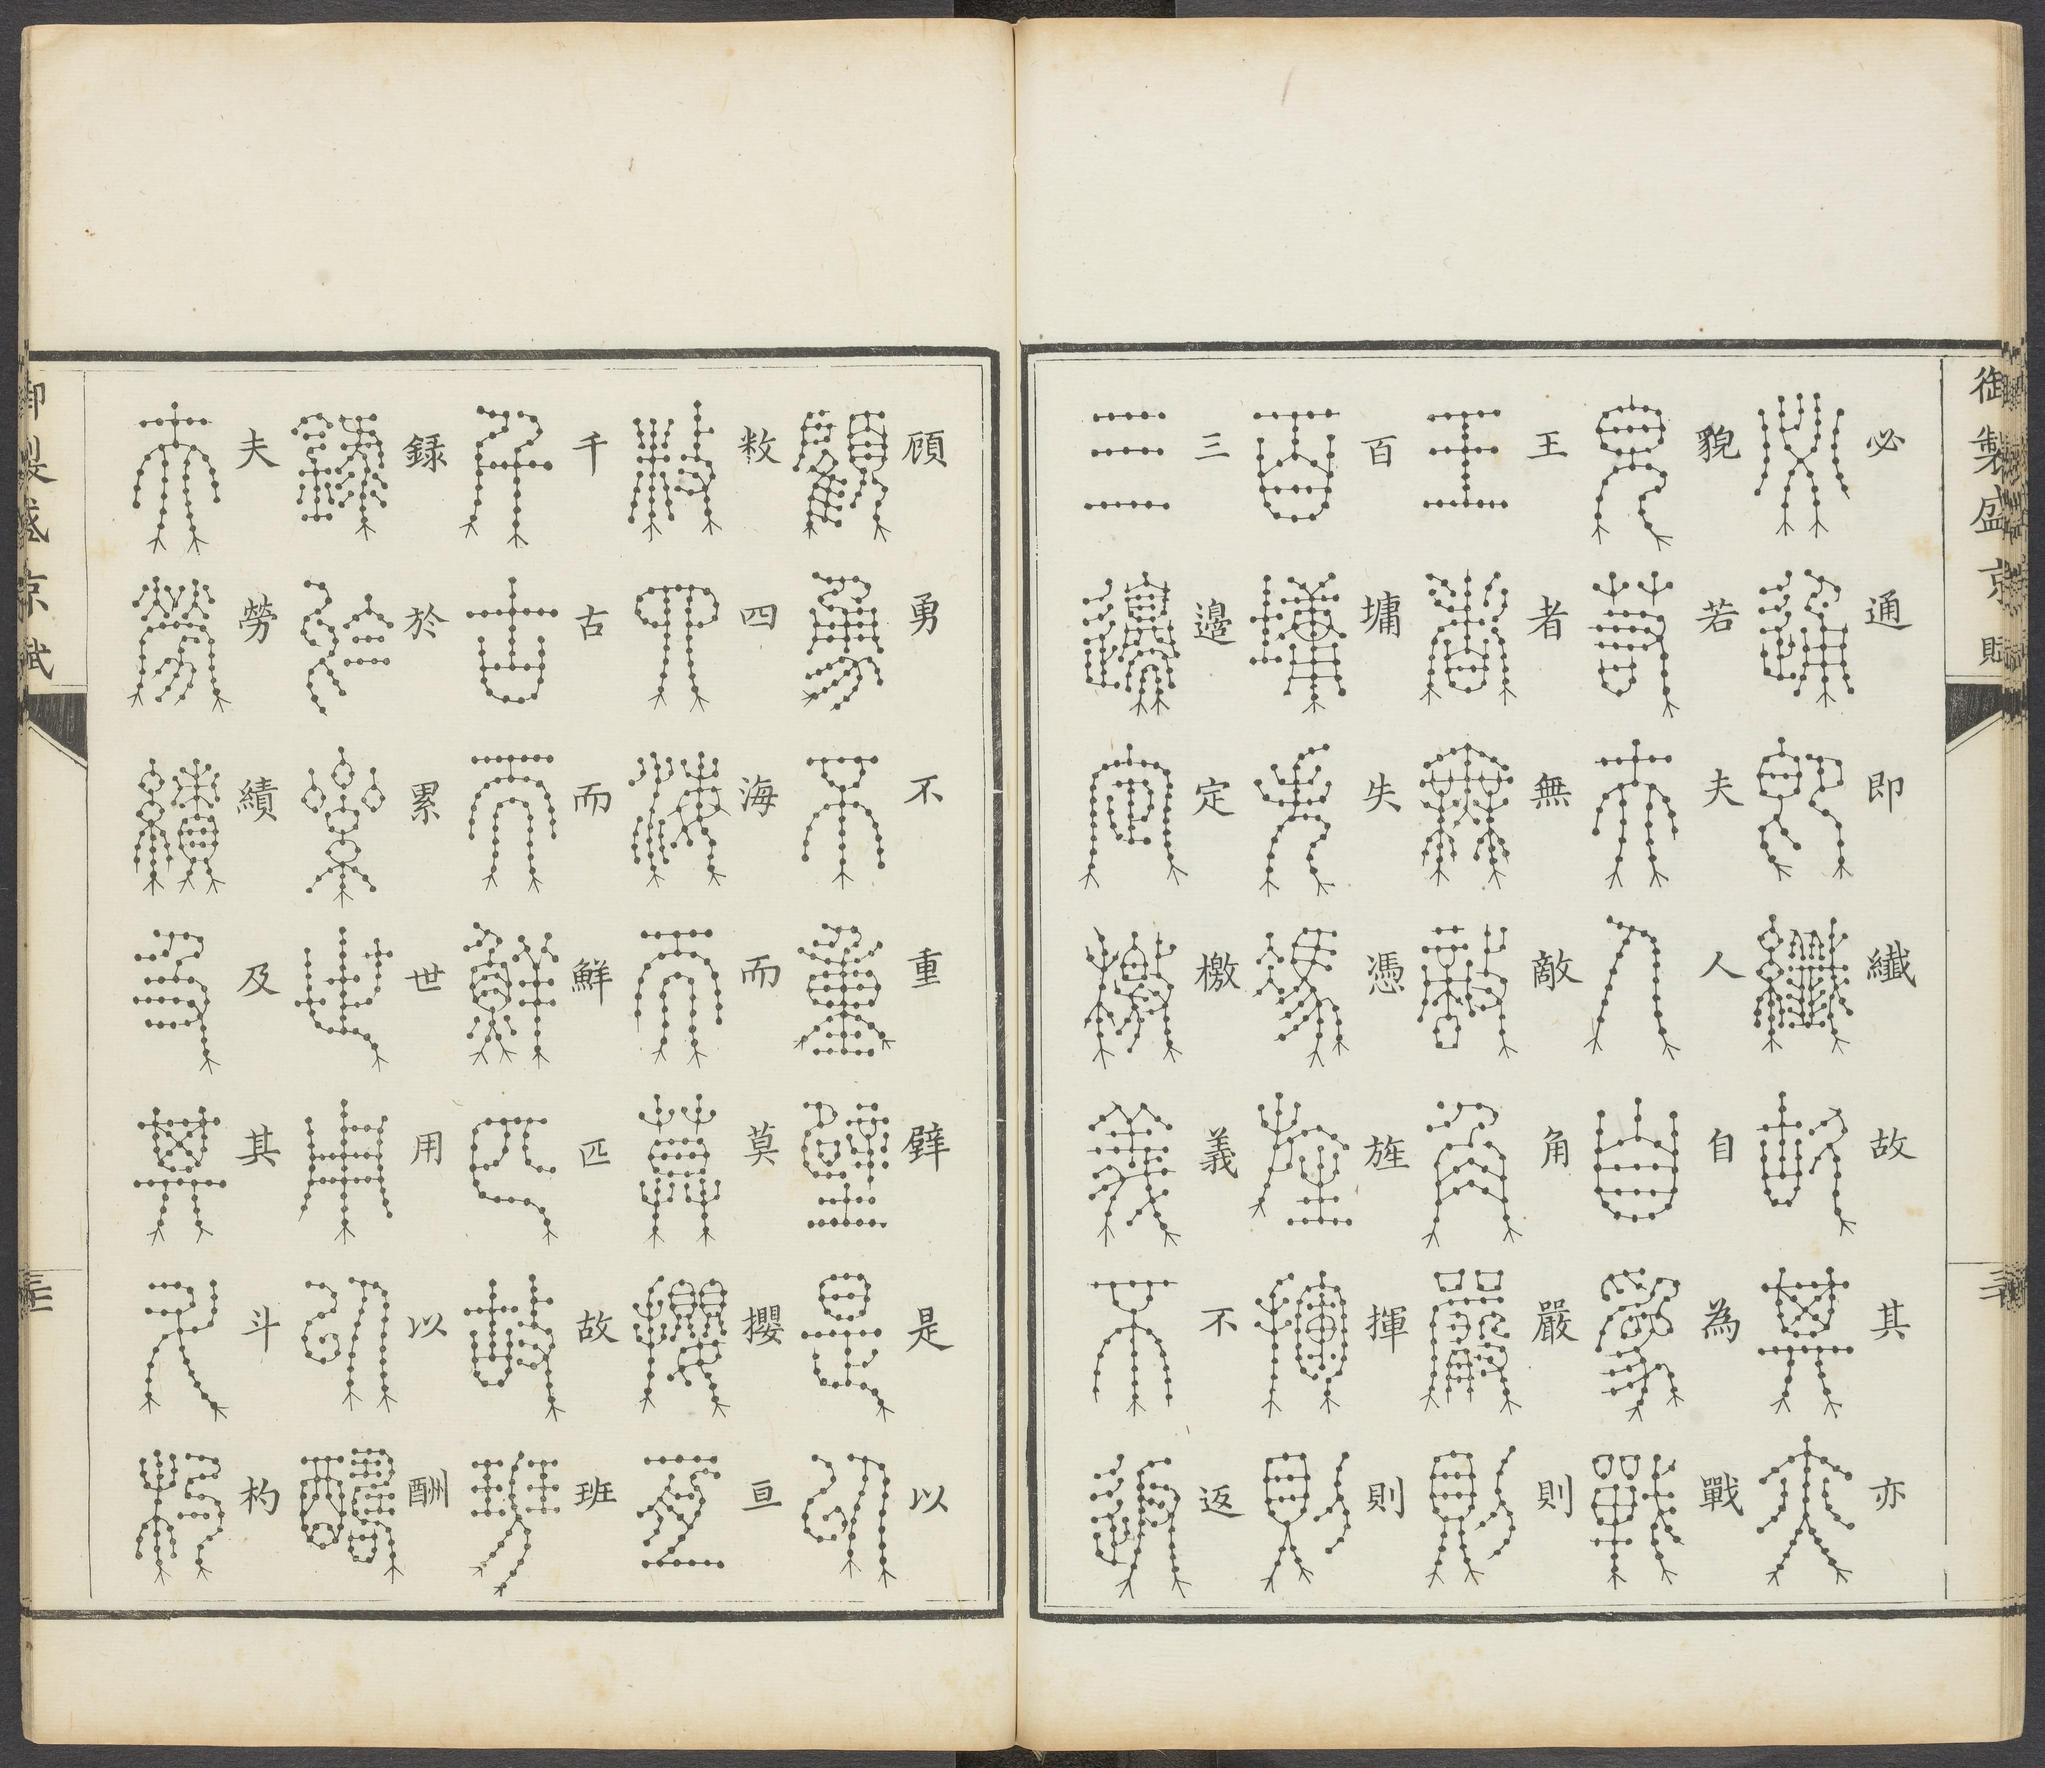 御製盛京賦
必通即纖故其亦
貌若夫人自為戰
王者無敵角嚴則
百墉失憑旌揮則
三邊定檄義不返
顧勇不重辥是以
敉四海而莫攖亘
千古而鮮匹故班
録於累世用以酬
夫勞績及其斗杓
御製盛京賦